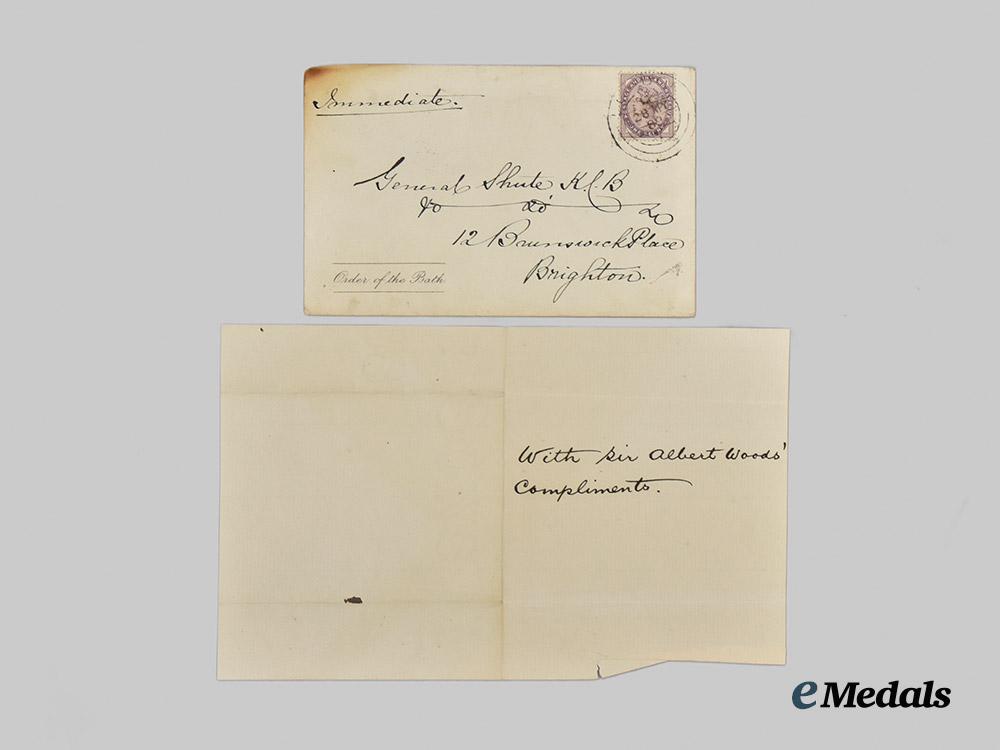 Immediate.
General Shute K.C.B
&c &c &c
12 Brunswick Place
Brighton.
Order of the Bath
With Sir Albert Woods'
Compliments.
eMedals